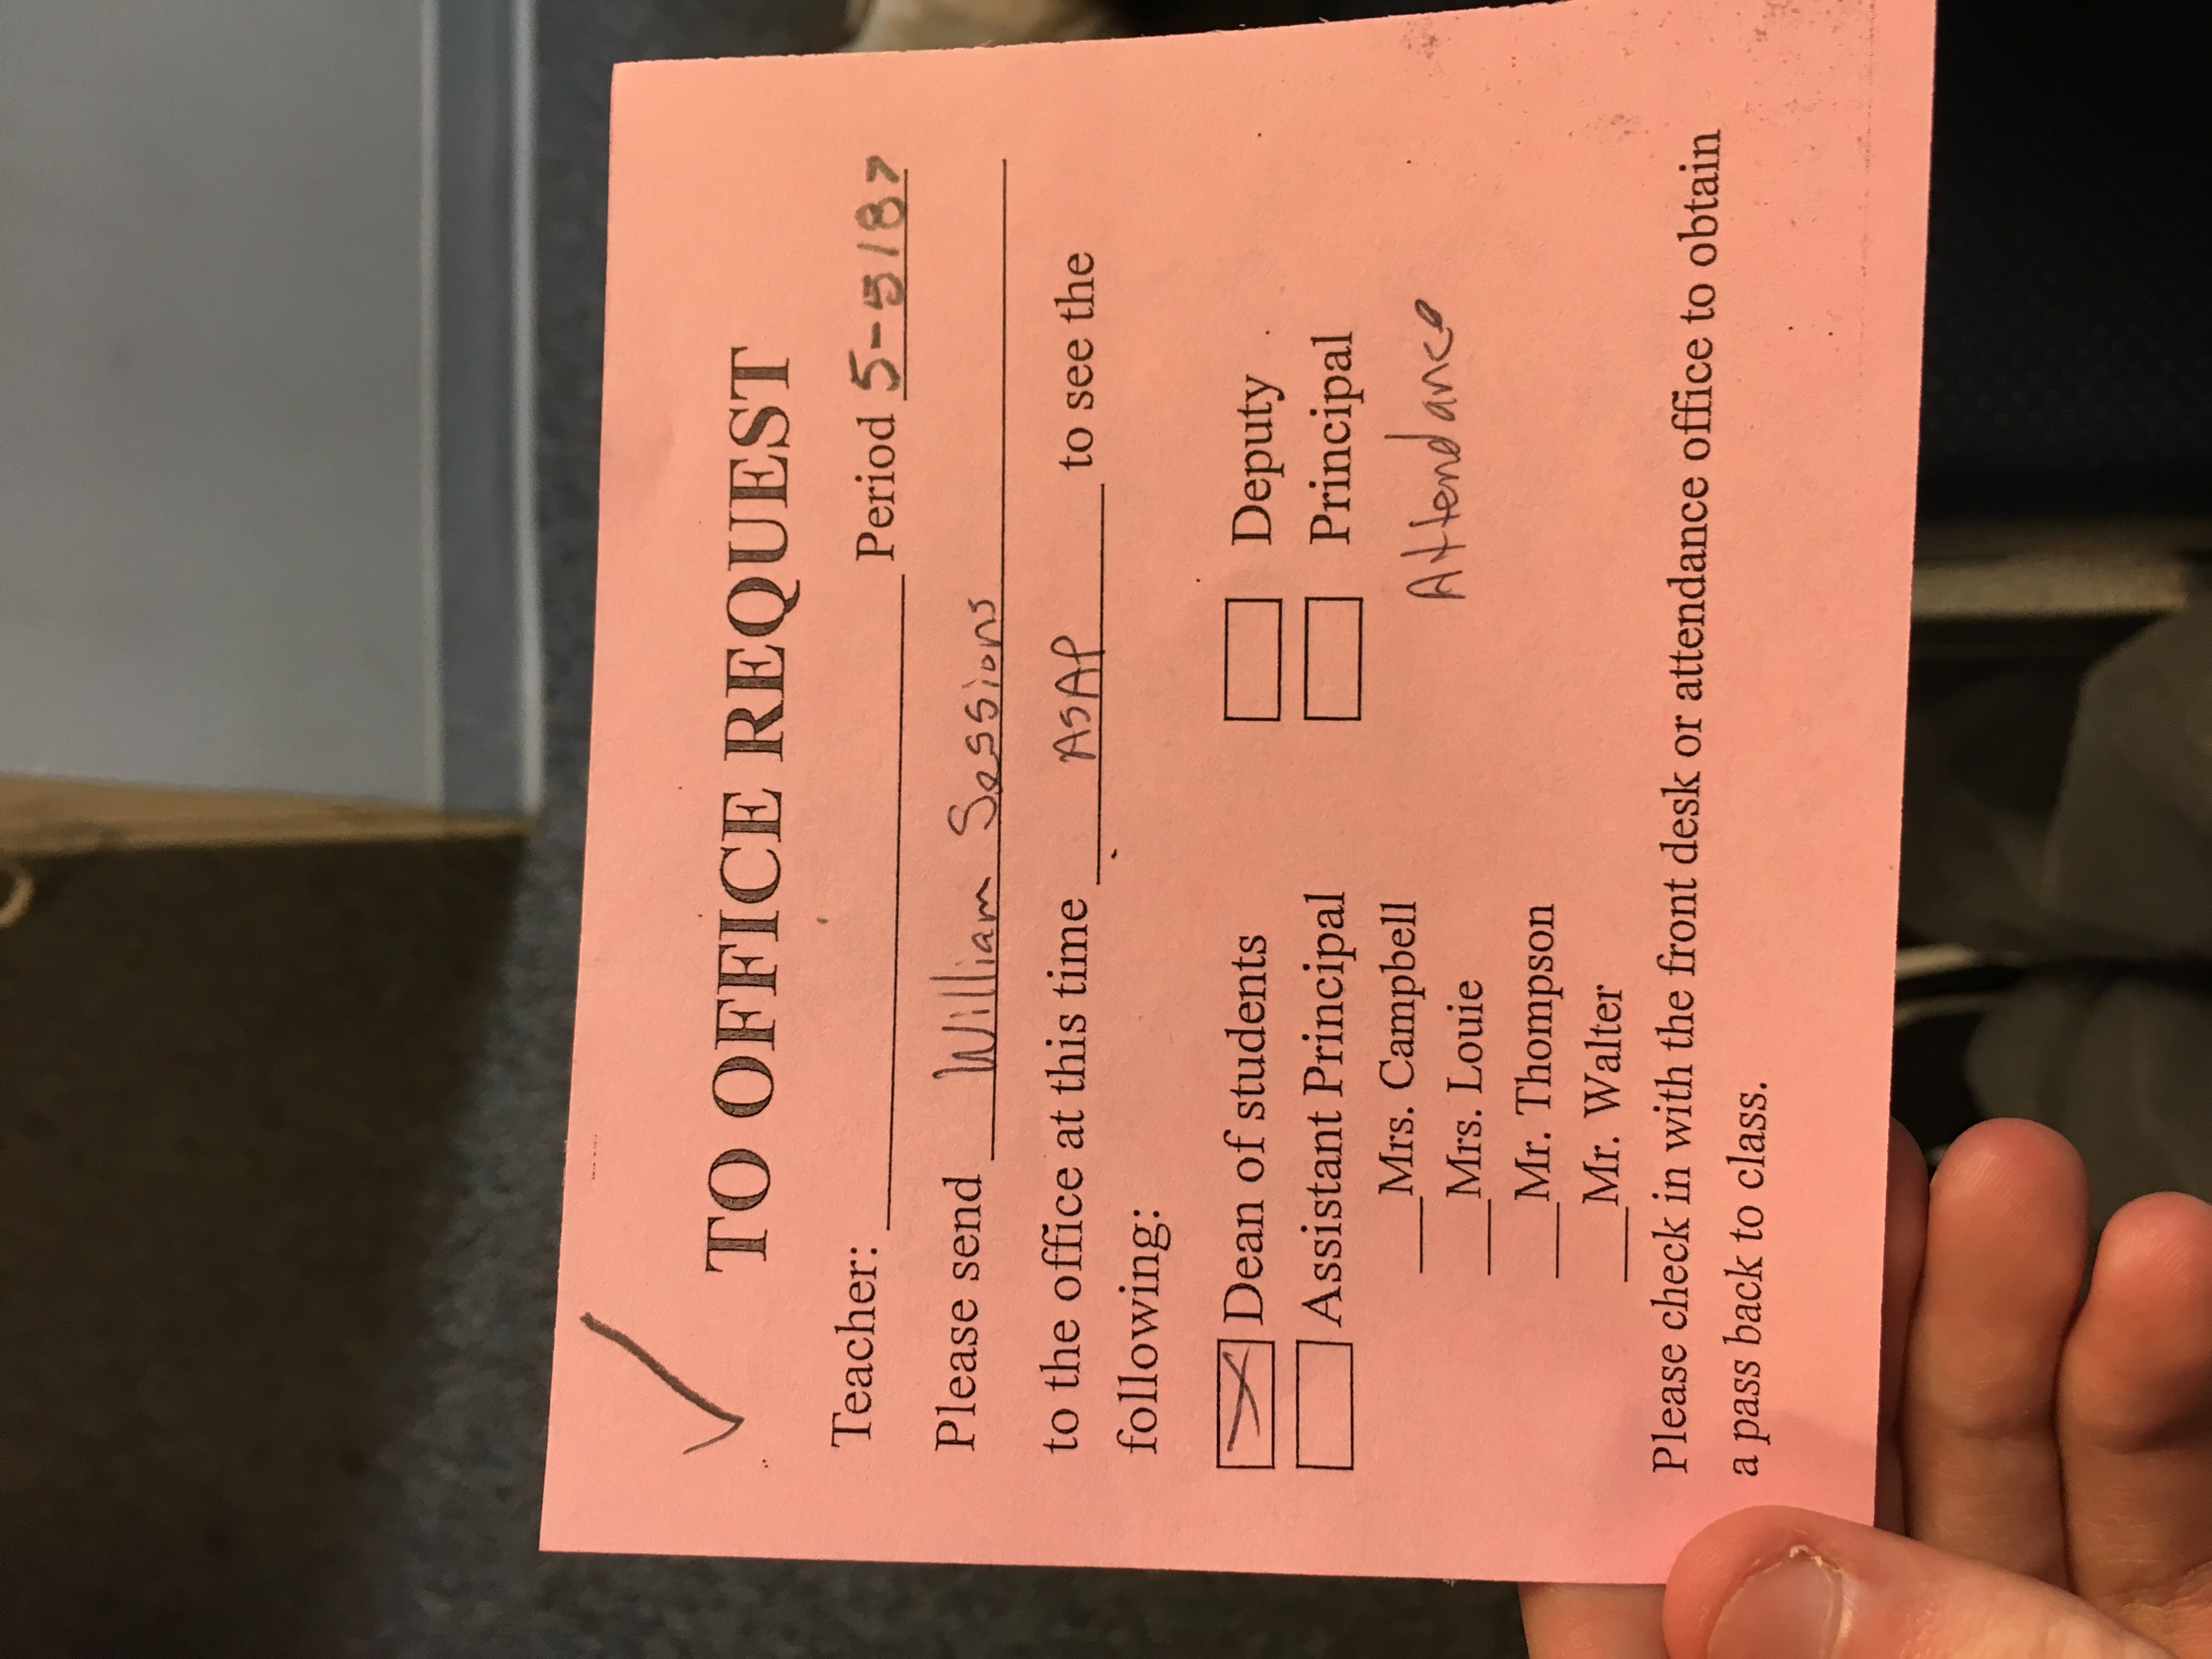 TO OFFICE REQUEST
Teacher: ____ Period 5-5187
Please send William Sessions
to the office at this time ASAP to see the
following:
Dean of students Deputy
Assistant Principal Principal
___Mrs. Campbell
Attendance
___Mrs. Louie
___Mr. Thompson
___Mr. Walter
Please check in with the front desk or attendance office to obtain
a pass back to class.